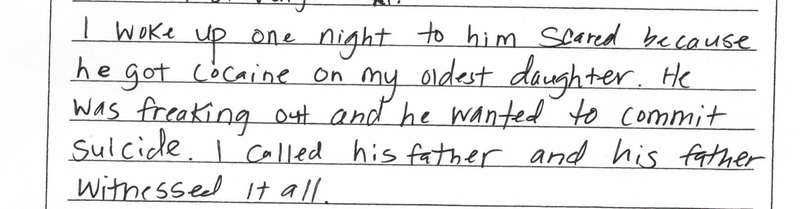 I woke up one night to him scared because
he got cocaine on my oldest daughter. He
was freaking out and he wanted to commit
suicide. I called his father and his father
witnessed it all.